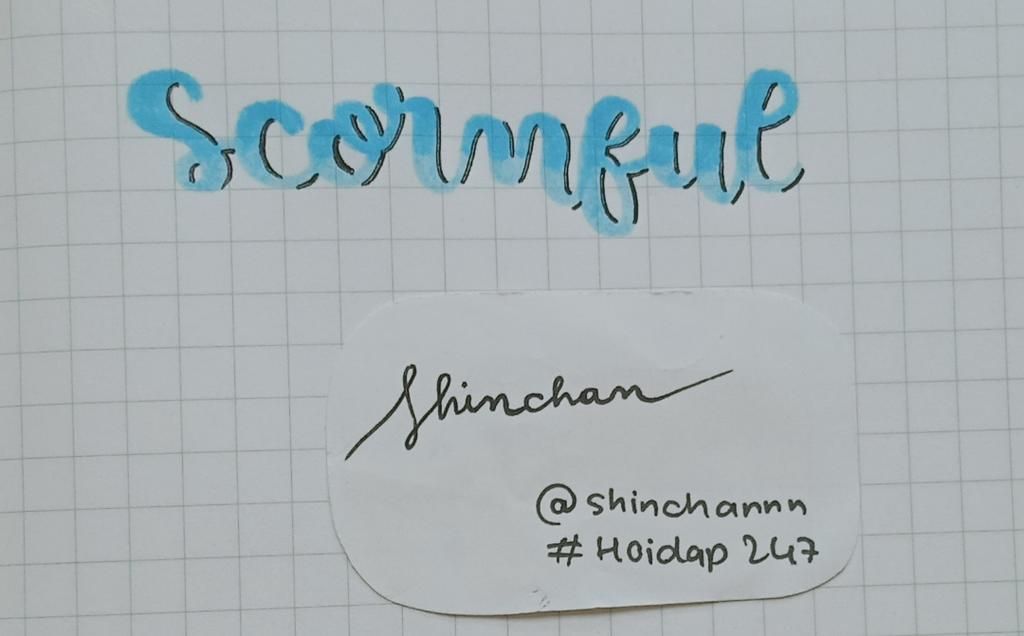 Scornful
Shinchan
@shinchannn
#Hoidap 247